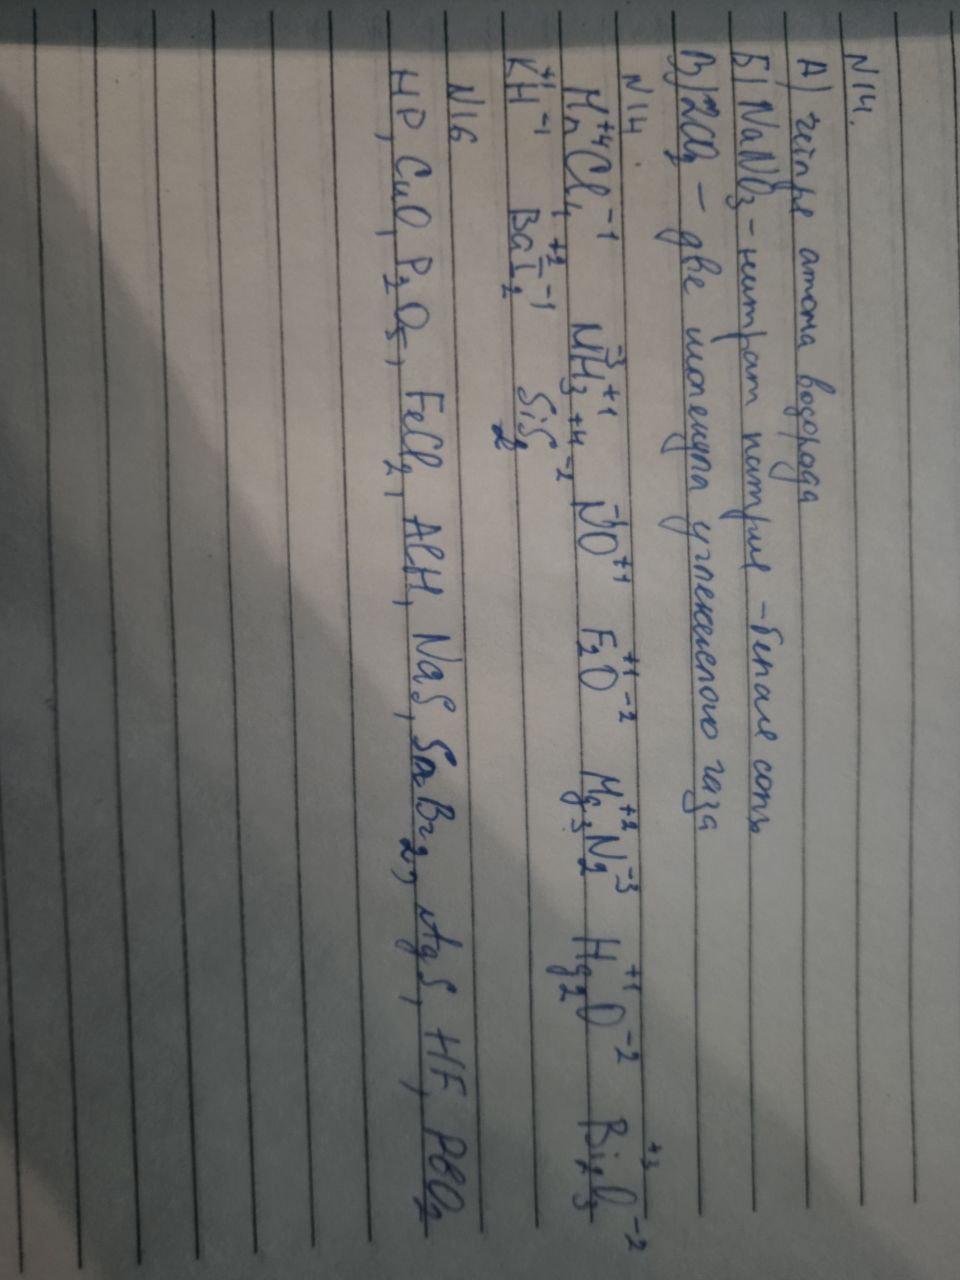 N14.
А) четыре атома водорода
Б) NaNO3 - нитрат натрия - белые соль
В) 2CO2 - две молекула углекислого газа
N14.
Mn+4Cl4-1 N-3H3+1 N-1O+1 F2+1O-2 Mg3+2N2-3 Hg2+1O-2 Bi2+3O3-2
K+1H-1 Ba+2I2-1 Si+4S2-2
N16
HP, CuO, P2O5, FeCl2, AlH, NaS, SnBr2, AgS, HF, PbO2